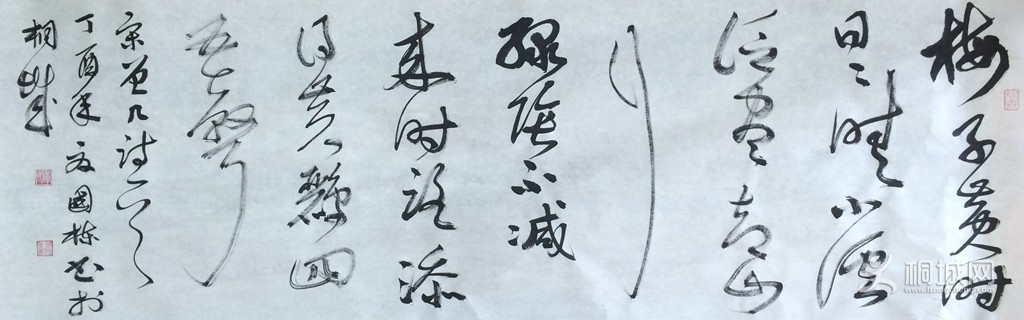 梅子黄时
日日晴小溪
泛尽却山
行
绿阴不減
来时路添
得黄鹂四
五聲
宋曾几诗一首
丁酉年夏國栋书于
桐城
桐城网